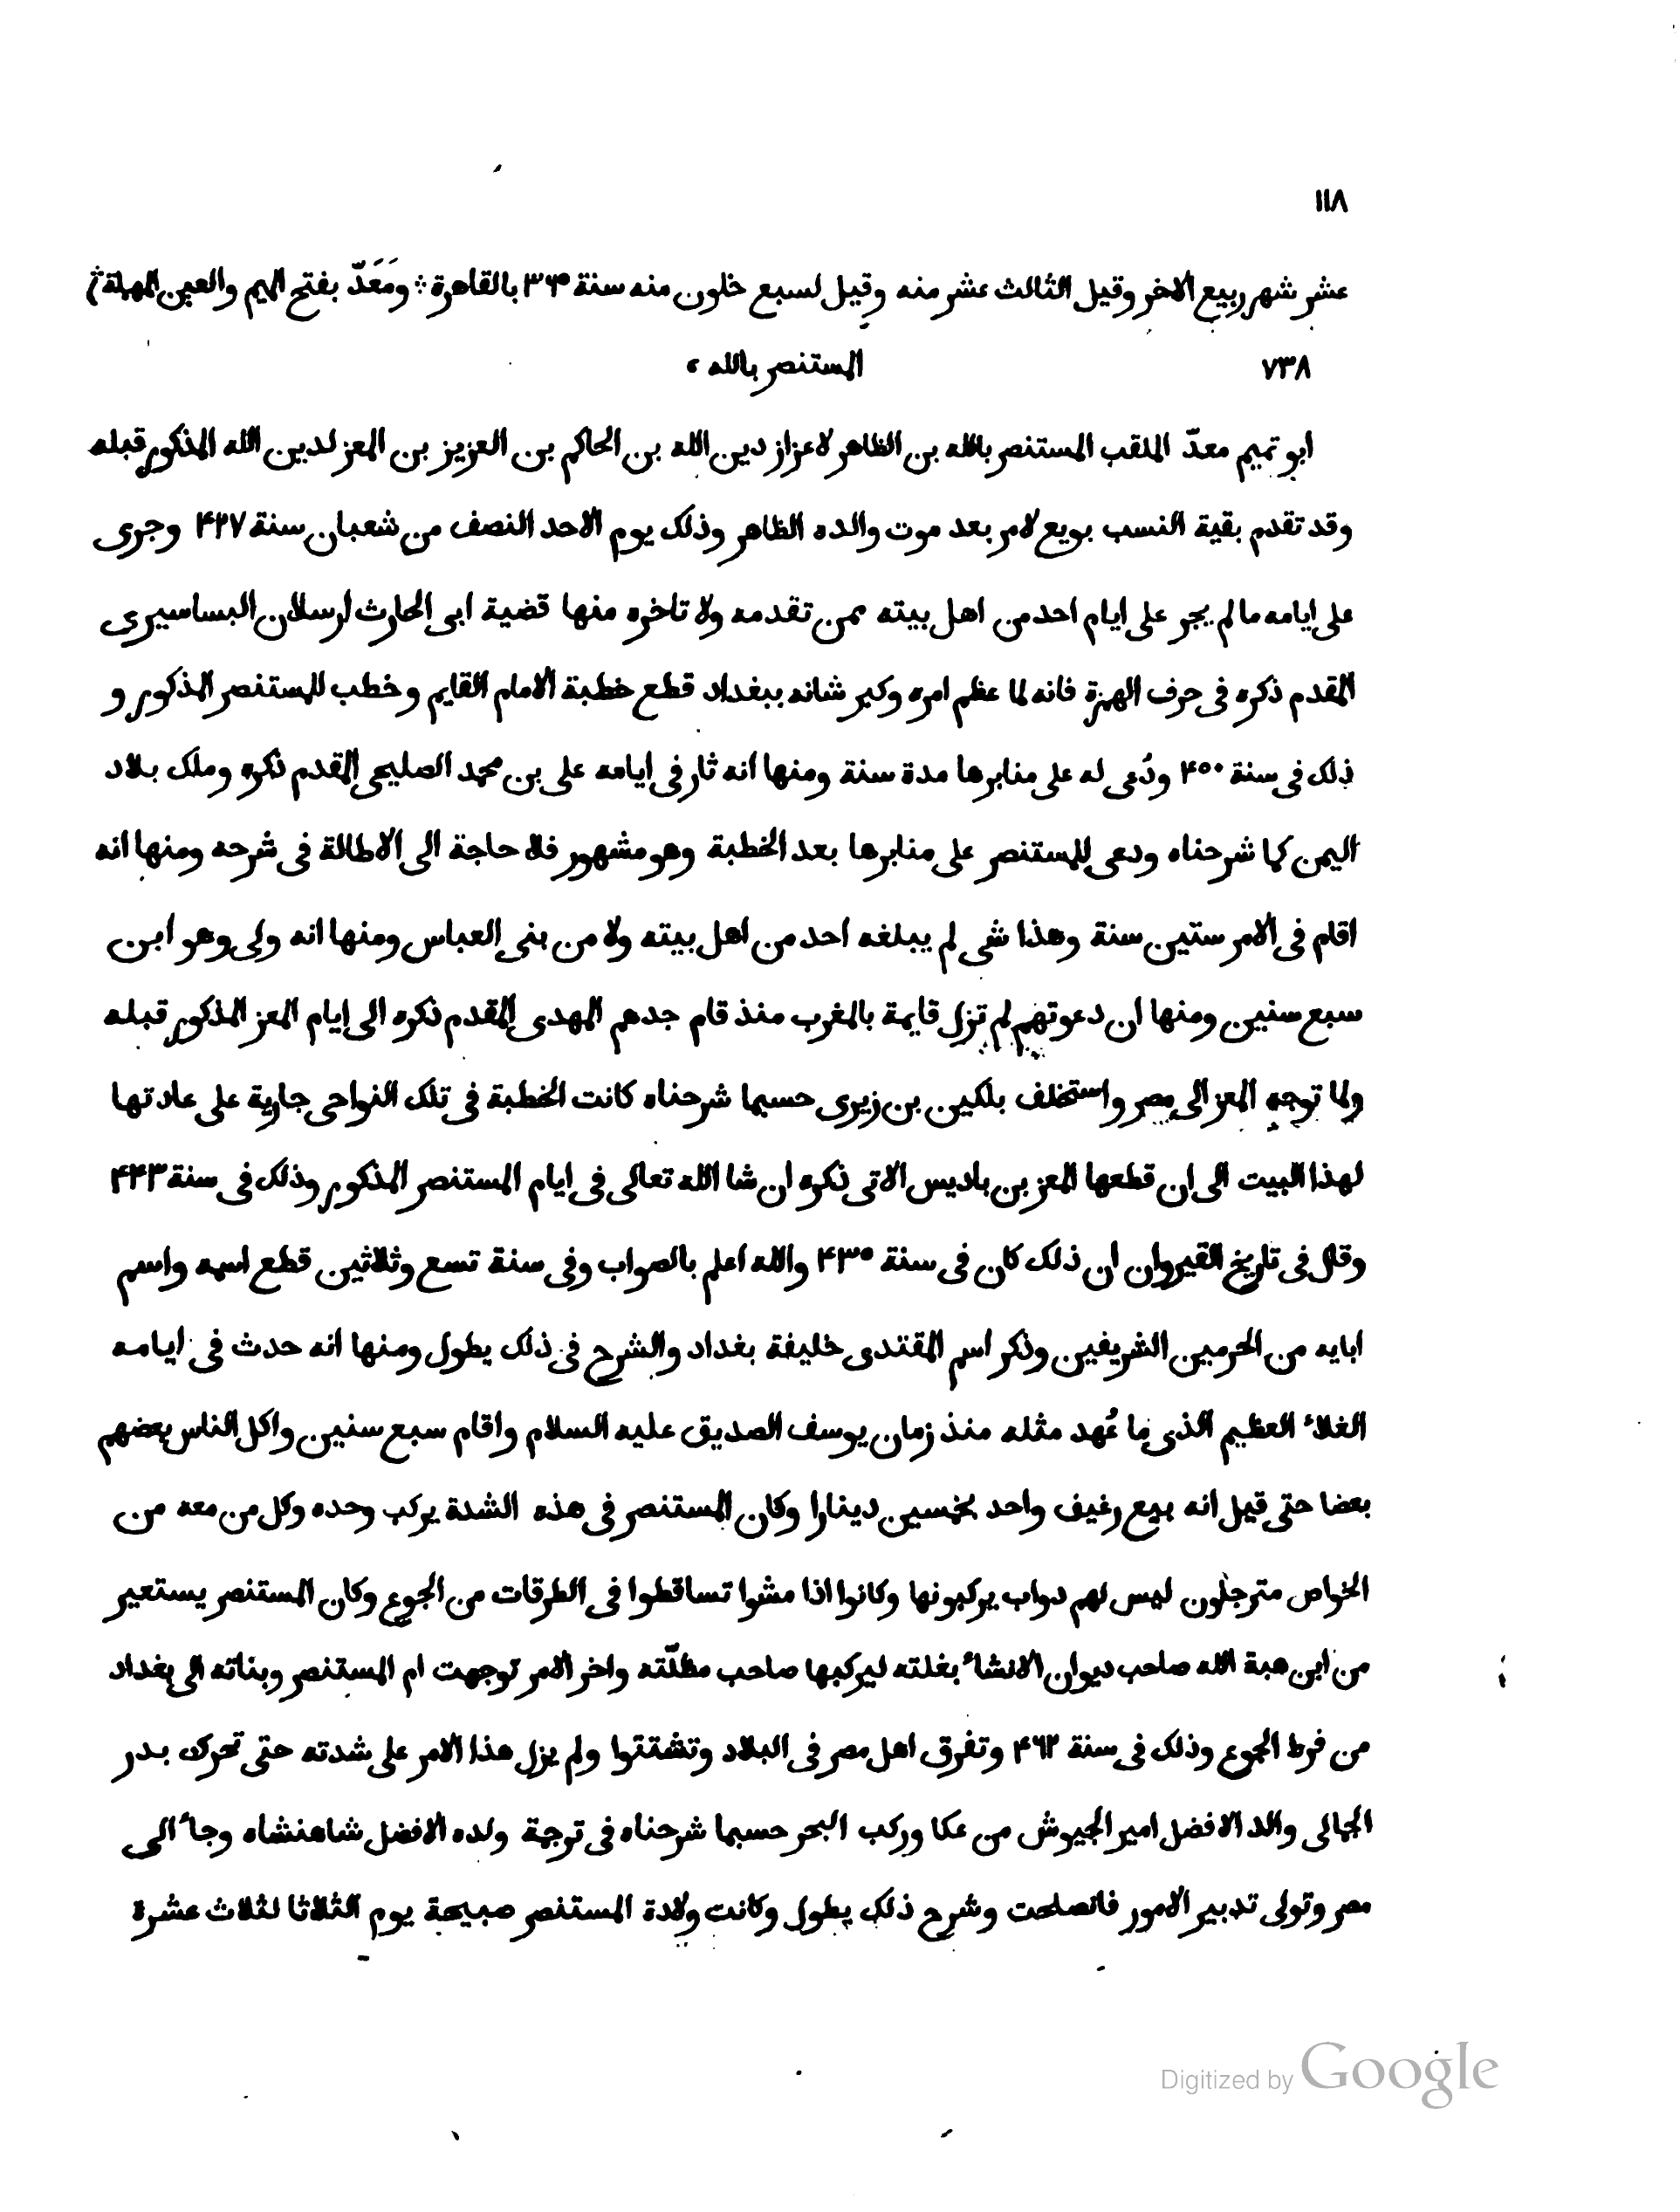 ١١٨
عشر شهر ربيع الاخر وقيل الثالث عشر منه وقيل لسبع خلون منه سنة ٣٦٥ بالقاهرة ۞ ومَعَدّ بفتح الميم والعين المهملة
٧٣٨ المستنصر بالله
ابو تميم معدّ الملقب المستنصر بالله بن الظاهر لاعزاز دين الله بن الحاكم بن العزيز بن المعز لدين الله المذكور قبله
وقد تقدم بقية النسب بويع لامر بعد موت والده الظاهر وذلك يوم الاحد النصف من شعبان سنة ۴٢٧ وجرى
على ايامه ما لم يجر على ايام احد من اهل بيته ممن تقدمه ولا تاخره منها قضية ابى الحارث ارسلان البساسيرى
المقدم ذكره فى حرف الهمزة فانه لما عظم امره وكبر شانه ببغداد قطع خطبة الامام القايم وخطب للمستنصر المذكور و
ذلك فى سنة ۴٥٠ ودُعى له على منابرها مدة سنة ومنها انه ثار فى ايامه على بن محمد الصليحى المقدم ذكره وملك بلاد
اليمن كما شرحناه ودعى للمستنصر على منابرها بعد الخطبة وهو مشهور فلا حاجة الى الاطالة فى شرحه ومنها انه
اقام فى الامر ستين سنة وهذا شى لم يبلغه احد من اهل بيته ولا من بنى العباس ومنها انه ولى وهو ابن
سبع سنين ومنها ان دعوتهم لم تزل قايمة بالمغرب منذ قام جدهم المهدى المقدم ذكره الى ايام المعز المذكور قبله
ولما توجه المعز الى مصر واستخلف بلكين بن زيرى حسبما شرحناه كانت الخطبة فى تلك النواحى جارية على عادتها
لهذا البيت الى ان قطعها المعز بن باديس الاتى ذكره ان شا الله تعالى فى ايام المستنصر المذكور وذلك فى سنة ۴۴٣
وقال فى تاريخ القيروان ان ذلك كان فى سنة ۴٣٥ والله اعلم بالصواب وفى سنة تسع وثلاثين قطع اسمه واسم
ابايه من الحرمين الشريفين وذكر اسم المقتدى خليفة بغداد والشرح فى ذلك يطول ومنها انه حدث فى ايامه
الغلاء العظيم الذى ما عُهد مثله منذ زمان يوسف الصديق عليه السلام واقام سبع سنين واكل الناس بعضهم
بعضا حتى قيل انه بيع رغيف واحد بخمسين دينارا وكان المستنصر فى هذه الشدة يركب وحده وكل من معه من
الخواص مترجلون ليس لهم دواب يركبونها وكانوا اذا مشوا تساقطوا فى الطرقات من الجوع وكان المستنصر يستعير
من ابن هبة الله صاحب ديوان الانشاء بغلته ليركبها صاحب مظلّته واخر الامر توجهت ام المستنصر وبناته الى بغداد
من فرط الجوع وذلك فى سنة ۴٦٢ وتفرق اهل مصر فى البلاد وتشتتوا ولم يزل هذا الامر على شدته حتى تحرك بدر
الجمالى والد الافضل امير الجيوش من عكا وركب البحر حسبما شرحناه فى ترجمة ولده الافضل شاهنشاه وجاء الى
مصر وتولى تدبير الامور فانصلحت وشرح ذلك يطول وكانت ولادة المستنصر صبيحة يوم الثلاثا لثلاث عشرة
Digitized by Google